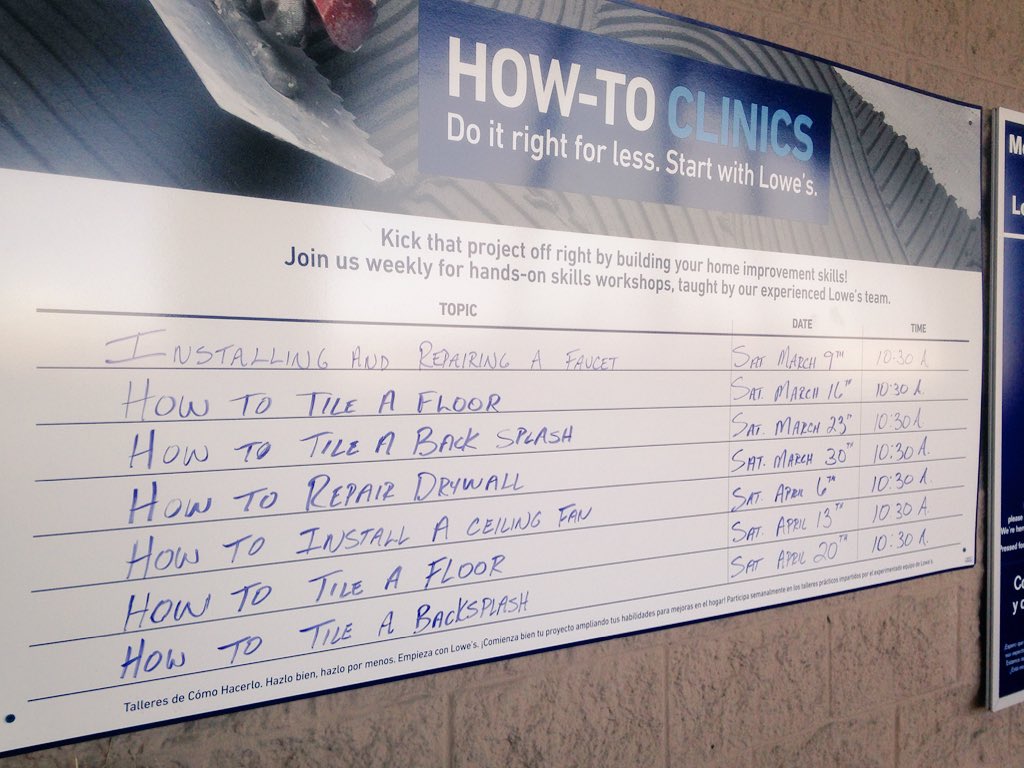 HOW-TO CLINICS
Do it right for less. Start with Lowe's.
Kick that project off right by building your home improvement skills!
Join us weekly for hands-on skills workshops, taught by our experienced Lowe's team.
TOPIC DATE TIME
INSTALLING AND REPAIRING A FAUCET SAT MARCH 9TH 10:30 A.
HOW TO TILE A FLOOR SAT. MARCH 16TH 10:30 A.
HOW TO TILE A BACK SPLASH SAT. MARCH 23TH 10:30 A.
HOW TO REPAIR DRYWALL SAT. MARCH 30TH 10:30 A.
HOW TO INSTALL A CEILING FAN SAT. APRIL 6TH 10:30 A.
HOW TO TILE A FLOOR SAT. APRIL 13TH 10:30 A.
HOW TO TILE A BACKSPLASH SAT APRIL 20TH 10:30 A.
Talleres de Cómo Hacerlo. Hazlo bien, hazlo por menos. Empieza con Lowe's. ¡Comienza bien tu proyecto ampliando tus habilidades para mejoras en el hogar! Participa semanalmente en los talleres prácticos impartidos por el experimentado equipo de Lowe's.
please
We're her